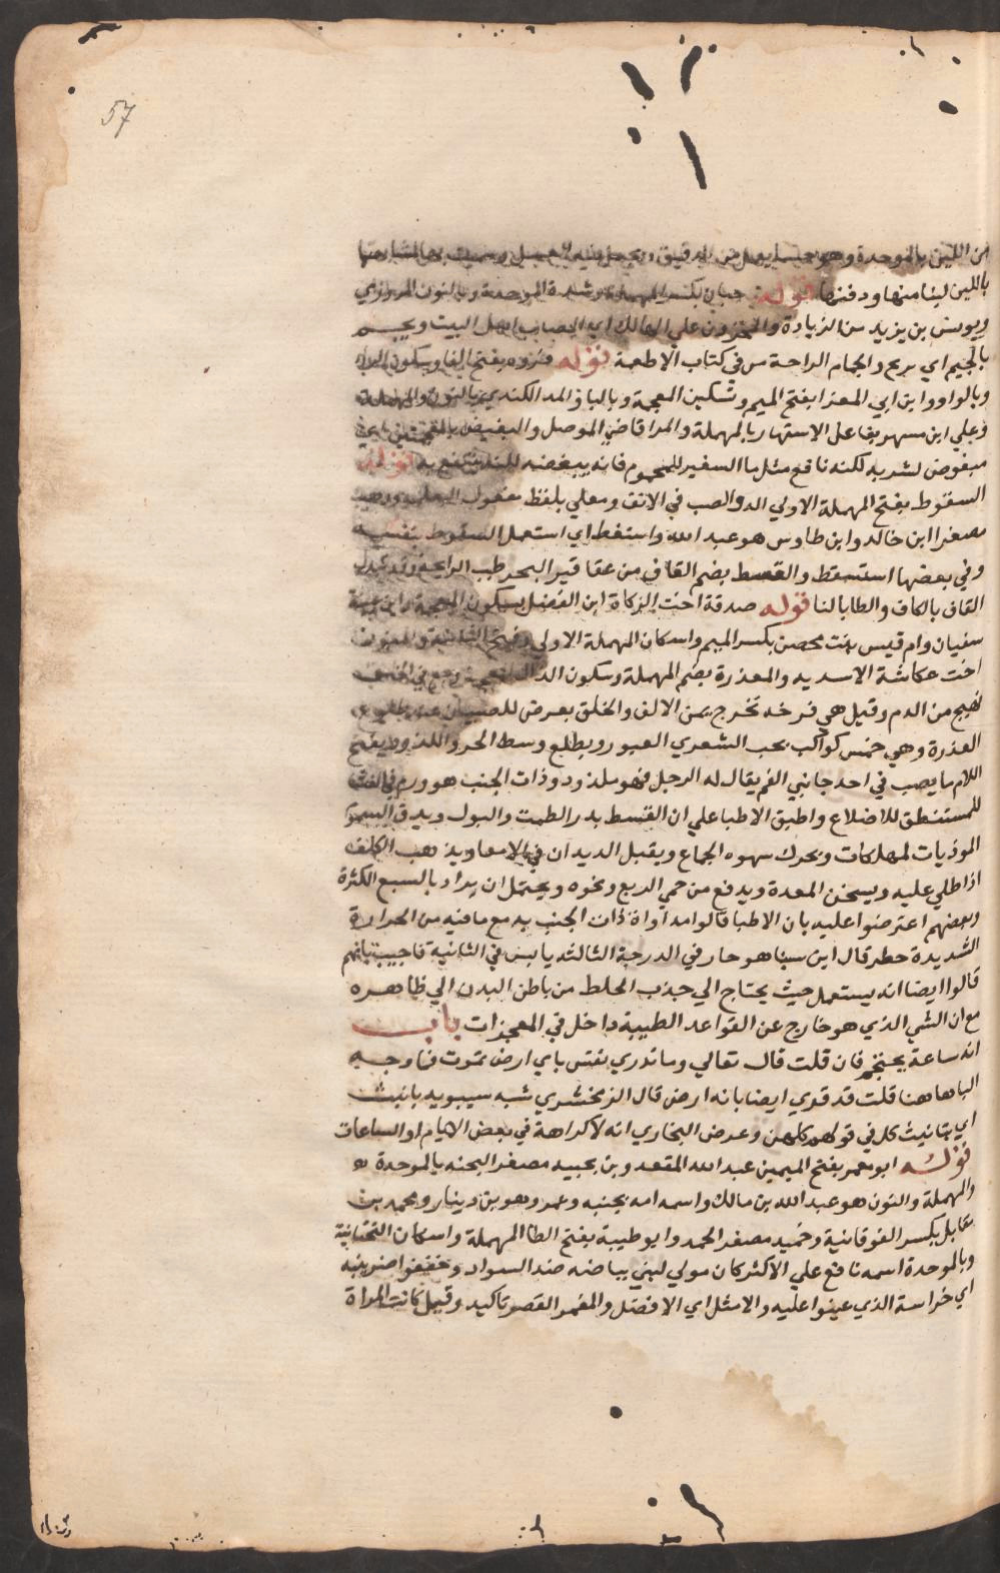 57
من اللين بالموحدة وهو حسا يعمل من الدقيق ويجعل فيه العسل وسميت بها لمشابهتها
باللبن لبياضها ورقتها قوله حبان بكسر المهملة وشدة الموحدة وبالنون المروزي
ويونس بن يزيد من الزيادة والمحزون علي الهالك اي المصاب اهل البيت ويجم
بالجيم اي يريح والجمام الراحة مر في كتاب الاطعمة قوله فروة بفتح الفا وسكون الراء
وبالواو وابن ابي المغرا بفتح الميم وتسكين المعجمة وبالبا والمد الكندي بالنون والمهملة
وعلي ابن مسهر بفاعل الاستهار بالمهملة والمرا قاضي الموصل والبغيض بالمعجمتين اي
مبغوض لشربه لكنه نافع مثل ما السفير للمحموم فانه يبغضه لكنه ينتفع به قوله
السقوط بفتح المهملة الاولي الدوا الصب في الانف ومعلي بلفظ مفعول التعلية ووهيب
مصغرا ابن خالد وابن طاوس هو عبد الله واستعط اي استعمل السقوط بنفسه
وفي بعضها استسقط والقسط بضم القاف من عقاقير البحر طيب الرايحة وقد يبدل
القاف بالكاف والطا بالتا قوله صدقة اخت الزكاة ابن الفضل بسكون المعجمة وابن عيينة
سفيان وام قيس بنت محصن بكسر الميم واسكان المهملة الاولي وفتح الثانية وبالنون
اخت عكاشة الاسديه والعذرة بضم المهملة وسكون الذال المعجمة وجع في الحلق
نهيج من الدم وقيل هي قرحة تخرج بين الالف والحلق يعرض للصبيان عند طلوع
العذرة وهي خمس كواكب تحت الشعري العبور ويطلع وسط الحر واللدود بفتح
اللام ما يصب في احد جانبي الفم يقال له الرجل فهو ملدود وذات الجنب هو ورم في الغشا
المستبطن للاضلاع واطبق الاطبا علي ان القسط يدر الطمث والبول ويدفع السموم
الموذيات المهلكات ويحرك سهوه الجماع ويقبل الديدان في الامعا ويذهب الكلف
اذا طلي عليه ويسخن المعدة ويدفع من حمي الربع ونحوه ويحتمل ان يراد بالسبع الكثرة
وبعضهم اعترضوا عليه بان الاطبا قالوا مداواة ذات الجنب به مع ما فيه من الحرارة
الشديدة خطر قال ابن سينا هو حار في الدرجة الثالثه يابس في الثانية فاجيب بانهم
قالوا ايضا انه يستعمل حيث يحتاج الي جذب الخلط من باطن البدن الي ظاهره
مع ان الشي الذي هو خارج عن القواعد الطبية داخل في المعجزات باب
انه ساعة يحتجم فان قلت قال تعالي وما تدري نفس باي ارض تموت فما وجه
البا هاهنا قلت قد قري ايضا بانه ارض قال الزمخشري شبه سيبويه بانيث
اي بتانيث كل في قولهم كلهن وعرض البخاري انه لا كراهة في بعض الايام او الساعات
قوله ابو معمر بفتح الميمين عبد الله المقعد وبن بحيبه مصغر البحنه بالموحدة
والمهملة والنون هو عبد الله بن مالك واسم امه بحينه وعمرو هو بن دينار ومحمد بن
مقابل بكسر الفوقانية وحميد مصغر الحمد وابو طيبة بفتح الطا المهملة واسكان التحتانية
وبالموحدة اسمه نافع علي الاكثر كان مولي لبني بياضه ضد السواد وخففوا ضريبته
اي خراسة الذي عينوا عليه والامثل اي الافضل والغمز القصر تاكيد وقيل كانت المراة